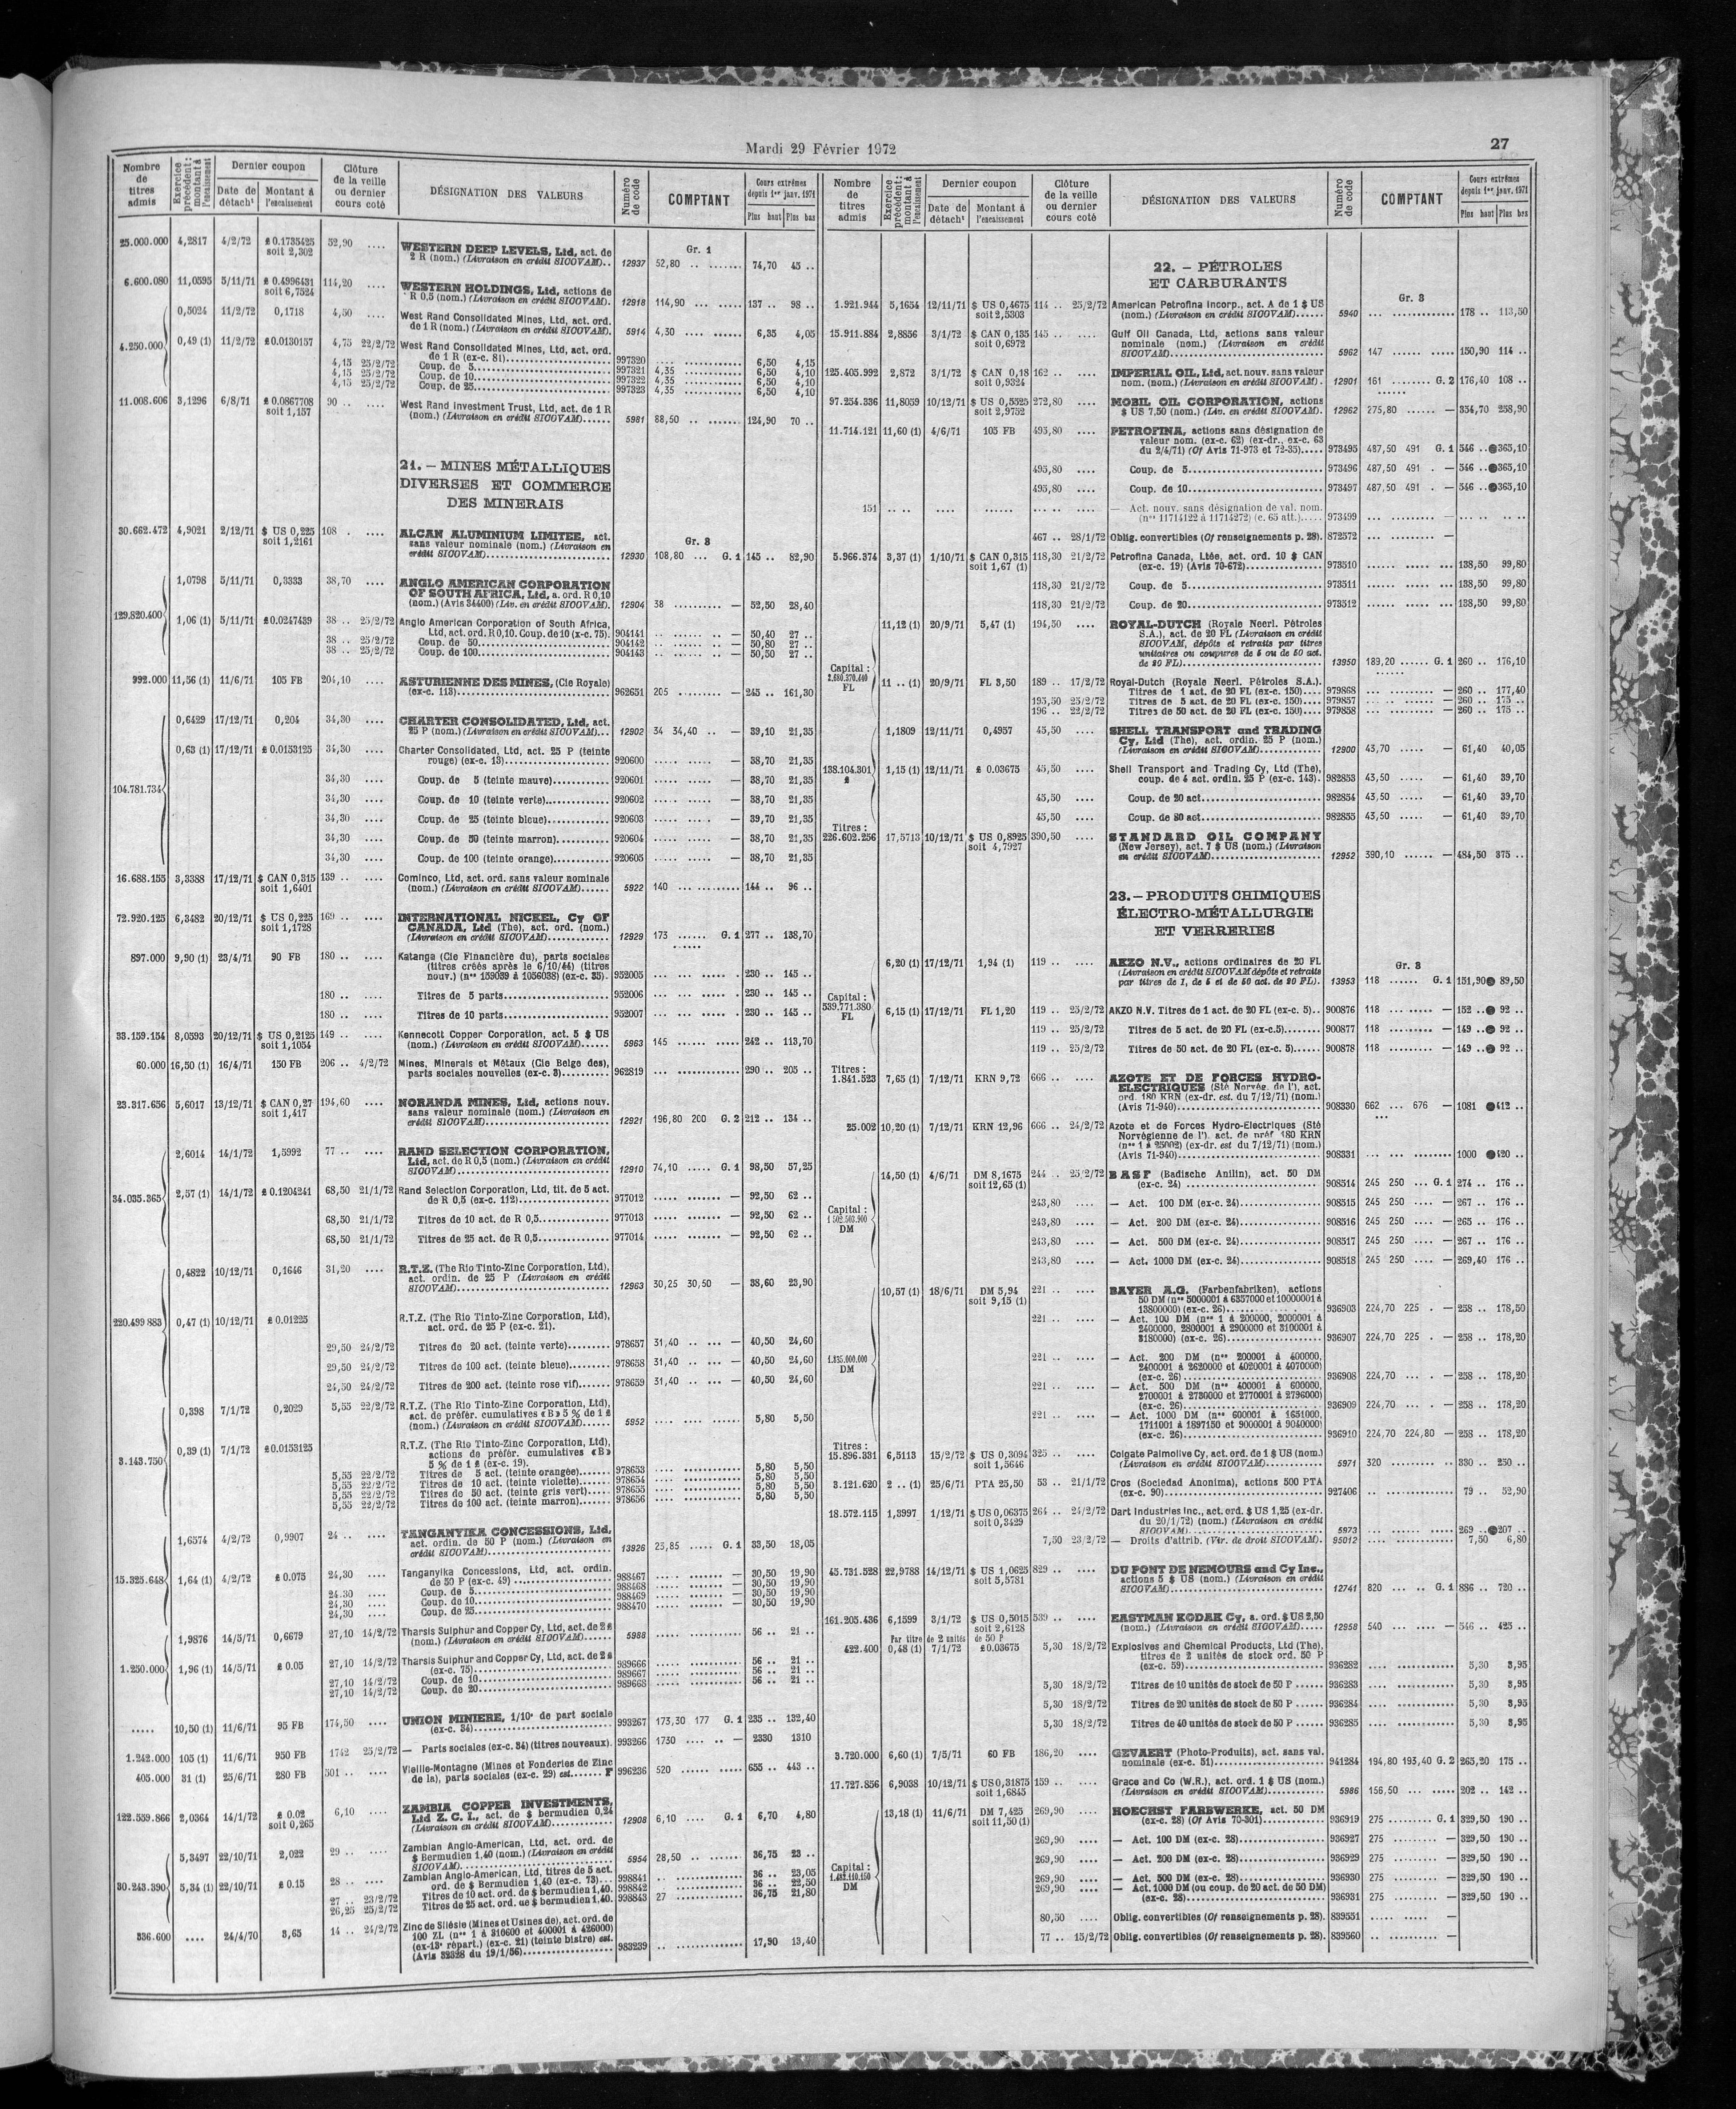 Mardi 29 Février 1972
27
Nombre de titres admis | Exercice précédent : montant à l'encaissement | Dernier coupon | Date de détacht | Montant à l'encaissement | Clôture de la veille ou dernier cours coté | DÉSIGNATION DES VALEURS | Numéro de code | COMPTANT | Cours extrêmes depuis 1er janv. 1971 | Plus haut | Plus bas
Gr. 1
25.000.000 4,2817 4/2/72 £ 0.1735425 52,90 .... WESTERN DEEP LEVELS, Ltd, act. de
soit 2,302 2 R (nom.) (Livraison en crédit SICOVAM).. 12937 52,80 .. ....... 74,70 45 ..
6.600.080 11,0595 5/11/71 £ 0.4996431 114,20 .... WESTERN HOLDINGS, Ltd, actions de
soit 6,7524 R 0,5 (nom.) (Livraison en crédit SICOVAM). 12918 114,90 ... ..... 137 .. 98 ..
0,5024 11/2/72 0,1718 4,50 .... West Rand Consolidated Mines, Ltd, act. ord.
de 1 R (nom.) (Livraison en crédit SICOVAM). 5914 4,30 .... ........ 6,35 4,05
4.250.000 0,49 (1) 11/2/72 £0.0130157 4,75 22/2/72 West Rand Consolidated Mines, Ltd, act. ord.
de 1 R (ex-c. 81) 997320 .... 6,50 4,15
4,15 25/2/72 Coup. de 5 997321 4,35 6,50 4,10
4,15 25/2/72 Coup. de 10 997322 4,35 6,50 4,10
4,15 25/2/72 Coup. de 25 997323 4,35 6,50 4,10
11.008.606 3,1296 6/8/71 £ 0.0867708 90 .. .... West Rand Investment Trust, Ltd, act. de 1 R
soit 1,157 (nom.) (Livraison en crédit SICOVAM) 5981 88,50 .. ....... 124,90 70 ..
21. – MINES MÉTALLIQUES
DIVERSES ET COMMERCE
DES MINERAIS
Gr. 3
30.662.472 4,9021 2/12/71 $ US 0,225 108 . .... ALCAN ALUMINIUM LIMITEE, act.
soit 1,2161 sans valeur nominale (nom.) (Livraison en
crédit SICOVAM) 12930 108,80 ... G. 1 145 .. 82,90
1,0798 5/11/71 0,3333 38,70 .... ANGLO AMERICAN CORPORATION
OF SOUTH AFRICA, Ltd, a. ord. R 0,10
(nom.) (Avis 34400) (Liv. en crédit SICOVAM). 12904 38 .......... — 52,50 28,40
129.820.400 1,06 (1) 5/11/71 £0.0247439 38 .. 25/2/72 Anglo American Corporation of South Africa,
Ltd, act. ord. R 0,10. Coup. de 10 (x-c. 75). 904141 .. — 50,40 27 ..
38 .. 25/2/72 Coup. de 50 904142 .. — 50,80 27 ..
38 .. 25/2/72 Coup. de 100 904143 .. — 50,50 27 ..
992.000 11,56 (1) 11/6/71 105 FB 204,10 .... ASTURIENNE DES MINES, (Cie Royale)
(ex-c. 113) 962651 205 ........ — 245 .. 161,30
0,6429 17/12/71 0,204 34,30 .... CHARTER CONSOLIDATED, Ltd, act.
25 P (nom.) (Livraison en crédit SICOVAM)... 12902 34 34,40 .. — 39,10 21,35
104.781.734 0,63 (1) 17/12/71 £ 0.0153125 34,30 .... Charter Consolidated, Ltd, act. 25 P (teinte
rouge) (ex-c. 13) 920600 ..... — 38,70 21,35
34,30 .... Coup. de 5 (teinte mauve) 920601 ..... — 38,70 21,35
34,30 .... Coup. de 10 (teinte verte) 920602 ..... — 38,70 21,35
34,30 .... Coup. de 25 (teinte bleue) 920603 ..... — 39,70 21,35
34,30 .... Coup. de 50 (teinte marron) 920604 ..... — 38,70 21,35
34,30 .... Coup. de 100 (teinte orange) 920605 ..... — 38,70 21,35
16.688.155 3,3388 17/12/71 $ CAN 0,315 139 .. .... Cominco, Ltd, act. ord. sans valeur nominale
soit 1,6401 (nom.) (Livraison en crédit SICOVAM) 5922 140 ... ......... 144 .. 96 ..
72.920.125 6,3482 20/12/71 $ US 0,225 169 .. .... INTERNATIONAL NICKEL, Cy OF
soit 1,1728 CANADA, Ltd (The), act. ord. (nom.)
(Livraison en crédit SICOVAM) 12929 173 ...... G. 1 277 .. 138,70
897.000 9,90 (1) 23/4/71 90 FB 180 .. .... Katanga (Cie Financière du), parts sociales
(titres créés après le 6/10/44) (titres
nouv.) (nos 159039 à 1056038) (ex-c. 35). 952005 ... 230 .. 145 ..
180 .. .... Titres de 5 parts 952006 ... 230 .. 145 ..
180 .. .... Titres de 10 parts 952007 ... 230 .. 145 ..
33.159.154 8,0593 20/12/71 $ US 0,2125 149 .. .... Kennecott Copper Corporation, act. 5 $ US
soit 1,1054 (nom.) (Livraison en crédit SICOVAM) 5963 145 ...... ..... 242 .. 113,70
60.000 16,50 (1) 16/4/71 150 FB 206 .. 4/2/72 Mines, Minerais et Métaux (Cie Belge des),
parts sociales nouvelles (ex-c. 3) 962819 ... 290 .. 205 ..
23.317.656 5,6017 13/12/71 $ CAN 0,27 194,60 .... NORANDA MINES, Ltd, actions nouv.
soit 1,417 sans valeur nominale (nom.) (Livraison en
crédit SICOVAM) 12921 196,80 200 G. 2 212 .. 134 ..
2,6014 14/1/72 1,5992 77 .. .... RAND SELECTION CORPORATION,
Ltd, act. de R 0,5 (nom.) (Livraison en crédit
SICOVAM) 12910 74,10 ..... G. 1 98,50 57,25
34.035.365 2,57 (1) 14/1/72 £ 0.1204241 68,50 21/1/72 Rand Selection Corporation, Ltd, tit. de 5 act.
de R 0,5 (ex-c. 112) 977012 ..... — 92,50 62 ..
68,50 21/1/72 Titres de 10 act. de R 0,5 977013 ..... — 92,50 62 ..
68,50 21/1/72 Titres de 25 act. de R 0,5 977014 ..... — 92,50 62 ..
0,4822 10/12/71 0,1646 31,20 .... R.T.Z. (The Rio Tinto-Zinc Corporation, Ltd),
act. ordin. de 25 P (Livraison en crédit
SICOVAM) 12963 30,25 30,50 — 38,60 23,90
220.499.883 0,47 (1) 10/12/71 £ 0.01225 R.T.Z. (The Rio Tinto-Zinc Corporation, Ltd),
act. ord. de 25 P (ex-c. 21).
29,50 24/2/72 Titres de 20 act. (teinte verte) 978657 31,40 .. ... — 40,50 24,60
29,50 24/2/72 Titres de 100 act. (teinte bleue) 978658 31,40 .. ... — 40,50 24,60
24,50 24/2/72 Titres de 200 act. (teinte rose vif) 978659 31,40 .. ... — 40,50 24,60
0,398 7/1/72 0,2029 5,55 22/2/72 R.T.Z. (The Rio Tinto-Zinc Corporation, Ltd),
act. de préfér. cumulatives «B» 5 % de 1 £
(nom.) (Livraison en crédit SICOVAM) 5952 .... 5,80 5,50
3.143.750 0,39 (1) 7/1/72 £0.0153125 R.T.Z. (The Rio Tinto-Zinc Corporation, Ltd),
actions de préfér. cumulatives «B»
5 % de 1 £ (ex-c. 19).
5,55 22/2/72 Titres de 5 act. (teinte orangée) 978653 .... 5,80 5,50
5,55 22/2/72 Titres de 10 act. (teinte violette) 978654 .... 5,80 5,50
5,55 22/2/72 Titres de 50 act. (teinte gris vert) 978655 .... 5,80 5,50
5,55 22/2/72 Titres de 100 act. (teinte marron) 978656 .... 5,80 5,50
1,6574 4/2/72 0,9907 24 .. .... TANGANYIKA CONCESSIONS, Ltd,
act. ordin. de 50 P (nom.) (Livraison en
crédit SICOVAM) 13926 25,85 ..... G. 1 33,50 18,05
15.325.648 1,64 (1) 4/2/72 £ 0.075 24,30 .... Tanganyika Concessions, Ltd, act. ordin.
de 50 P (ex-c. 49) 988467 ..... — 30,50 19,90
24,30 .... Coup. de 5 988468 ..... — 30,50 19,90
24,30 .... Coup. de 10 988469 ..... — 30,50 19,90
24,30 .... Coup. de 25 988470 ..... — 30,50 19,90
1,9876 14/5/71 0,6679 27,10 14/2/72 Tharsis Sulphur and Copper Cy, Ltd, act. de 2 £
(nom.) (Livraison en crédit SICOVAM) 5988 .... 56 .. 21 ..
1.250.000 1,96 (1) 14/5/71 £ 0.05 27,10 14/2/72 Tharsis Sulphur and Copper Cy, Ltd, act. de 2 £
(ex-c. 75) 989666 .... 56 .. 21 ..
27,10 14/2/72 Coup. de 10 989667 .... 56 .. 21 ..
27,10 14/2/72 Coup. de 20 989668 .... 56 .. 21 ..
..... 10,50 (1) 11/6/71 95 FB 174,50 .... UNION MINIERE, 1/10e de part sociale
(ex-c. 34) 993267 173,30 177 G. 1 235 .. 132,40
1.242.000 105 (1) 11/6/71 950 FB 1742 25/2/72 — Parts sociales (ex-c. 34) (titres nouveaux). 993266 1730 .... .. — 2330 1310
405.000 31 (1) 25/6/71 280 FB 501 .. .... Vieille-Montagne (Mines et Fonderies de Zinc
de la), parts sociales (ex-c. 29) est....... F 996236 520 ...... ..... 655 .. 443 ..
122.559.866 2,0364 14/1/72 £ 0.02 6,10 .... ZAMBIA COPPER INVESTMENTS,
soit 0,265 Ltd Z. C. I., act. de $ bermudien 0,24
(Livraison en crédit SICOVAM) 12908 6,10 .... G. 1 6,70 4,80
5,3497 22/10/71 2,022 29 .. .... Zambian Anglo-American, Ltd, act. ord. de
$ Bermudien 1,40 (nom.) (Livraison en crédit
SICOVAM) 5954 28,50 .. ....... 36,75 23 ..
30.243.390 5,34 (1) 22/10/71 £ 0.15 28 .. .... Zambian Anglo-American, Ltd, titres de 5 act.
ord. de $ Bermudien 1,40 (ex-c. 73) 998841 .. 36 .. 23,05
27 .. 23/2/72 Titres de 10 act. ord. de $ bermudien 1,40. 998842 .. 36 .. 22,50
26,25 25/2/72 Titres de 25 act. ord. de $ bermudien 1,40. 998843 27 36,75 21,80
336.600 .... 24/4/70 3,65 14 .. 24/2/72 Zinc de Silésie (Mines et Usines de), act. ord. de
100 ZL (nos 1 à 310600 et 400001 à 426000)
(ex-13e répart.) (ex-c. 21) (teinte bistre) est.
(Avis 32328 du 19/1/56) 983239 .. 17,90 13,40
Nombre de titres admis | Exercice précédent : montant à l'encaissement | Dernier coupon | Date de détacht | Montant à l'encaissement | Clôture de la veille ou dernier cours coté | DÉSIGNATION DES VALEURS | Numéro de code | COMPTANT | Cours extrêmes depuis 1er janv. 1971 | Plus haut | Plus bas
22. – PÉTROLES
ET CARBURANTS
Gr. 3
1.921.944 5,1654 12/11/71 $ US 0,4675 114 .. 25/2/72 American Petrofina Incorp., act. A de 1 $ US
soit 2,5303 (nom.) (Livraison en crédit SICOVAM) 5940 ... 178 .. 113,50
15.911.884 2,8856 3/1/72 $ CAN 0,135 145 .. .... Gulf Oil Canada, Ltd, actions sans valeur
soit 0,6972 nominale (nom.) (Livraison en crédit
SICOVAM) 5962 147 ...... ..... 150,90 114 ..
125.405.992 2,872 3/1/72 $ CAN 0,18 162 .. .... IMPERIAL OIL, Ltd, act. nouv. sans valeur
soit 0,9324 nom. (nom.) (Livraison en crédit SICOVAM). 12901 161 ........ G. 2 176,40 108 ..
97.254.336 11,8059 10/12/71 $ US 0,5525 272,80 .... MOBIL OIL CORPORATION, actions
soit 2,9752 $ US 7,50 (nom.) (Liv. en crédit SICOVAM). 12962 275,80 ...... — 354,70 258,90
11.714.121 11,60 (1) 4/6/71 105 FB 495,80 .... PETROFINA, actions sans désignation de
valeur nom. (ex-c. 62) (ex-dr., ex-c. 63
du 2/4/71) (Cf Avis 71-973 et 72-35) 973495 487,50 491 G. 1 546 .. ●365,10
495,80 .... Coup. de 5 973496 487,50 491 . — 546 .. ●365,10
495,80 .... Coup. de 10 973497 487,50 491 . — 546 .. ●365,10
151 .. .. .... ...... ... .. .... — Act. nouv. sans désignation de val. nom.
(nos 11714122 à 11714272) (c. 65 att.) 973499 ... — .... .. ..
467 .. 28/1/72 Oblig. convertibles (Cf renseignements p. 28). 872572 ... —
5.966.374 3,37 (1) 1/10/71 $ CAN 0,315 118,30 21/2/72 Petrofina Canada, Ltée, act. ord. 10 $ CAN
soit 1,67 (1) (ex-c. 19) (Avis 70-672) 973510 ...... 138,50 99,80
118,30 21/2/72 Coup. de 5 973511 ...... 138,50 99,80
118,30 21/2/72 Coup. de 20 973512 ...... 138,50 99,80
11,12 (1) 20/9/71 5,47 (1) 194,50 .... ROYAL-DUTCH (Royale Neerl. Pétroles
S.A.), act. de 20 FL (Livraison en crédit
SICOVAM, dépôts et retraits par titres
unitaires ou coupures de 5 ou de 50 act.
de 20 FL) 13950 189,20 ...... G. 1 260 .. 176,10
Capital :
2.680.370.440
FL
11 .. (1) 20/9/71 FL 3,50 189 .. 17/2/72 Royal-Dutch (Royale Neerl. Pétroles S.A.).
Titres de 1 act. de 20 FL (ex-c. 150) 979868 ... — 260 .. 177,40
195,50 25/2/72 Titres de 5 act. de 20 FL (ex-c. 150) 979857 ... — 260 .. 175 ..
196 .. 22/2/72 Titres de 50 act. de 20 FL (ex-c. 150) 979858 ... — 260 .. 175 ..
1,1809 12/11/71 0,4957 45,50 .... SHELL TRANSPORT and TRADING
Cy, Ltd (The), act. ordin. 25 P (nom.)
(Livraison en crédit SICOVAM) 12900 43,70 ..... — 61,40 40,05
138.104.301
£
1,15 (1) 12/11/71 £ 0.03675 45,50 .... Shell Transport and Trading Cy, Ltd (The),
coup. de 4 act. ordin. 25 P (ex-c. 143). 982853 43,50 ..... — 61,40 39,70
45,50 .... Coup. de 20 act 982854 43,50 ..... — 61,40 39,70
45,50 .... Coup. de 80 act 982855 43,50 ..... — 61,40 39,70
Titres :
226.602.256 17,5713 10/12/71 $ US 0,8925 390,50 .... STANDARD OIL COMPANY
soit 4,7927 (New Jersey), act. 7 $ US (nom.) (Livraison
en crédit SICOVAM) 12952 390,10 ...... — 484,50 375 ..
23. – PRODUITS CHIMIQUES
ÉLECTRO-MÉTALLURGIE
ET VERRERIES
Gr. 3
6,20 (1) 17/12/71 1,94 (1) 119 .. .... AKZO N.V., actions ordinaires de 20 FL
(Livraison en crédit SICOVAM dépôts et retraits
par titres de 1, de 5 et de 50 act. de 20 FL). 13953 118 ...... G. 1 151,90 ● 89,50
Capital :
539.771.380
FL
6,15 (1) 17/12/71 FL 1,20 119 .. 25/2/72 AKZO N.V. Titres de 1 act. de 20 FL (ex-c. 5).. 900876 118 ... ..... — 152 .. ● 92 ..
119 .. 25/2/72 Titres de 5 act. de 20 FL (ex-c.5) 900877 118 ......... — 149 .. ● 92 ..
119 .. 25/2/72 Titres de 50 act. de 20 FL (ex-c. 5) 900878 118 ......... — 149 .. ● 92 ..
Titres :
1.841.523 7,65 (1) 7/12/71 KRN 9,72 666 .. .... AZOTE ET DE FORCES HYDRO-
ELECTRIQUES (Sté Norvég. de l'), act.
ord. 180 KRN (ex-dr. est. du 7/12/71) (nom.)
(Avis 71-940) 908330 662 ... 676 — 1081 ●412 ..
25.002 10,20 (1) 7/12/71 KRN 12,96 666 .. 24/2/72 Azote et de Forces Hydro-Electriques (Sté
Norvégienne de l'). act. de préf 180 KRN
(nos 1 à 25002) (ex-dr. est du 7/12/71) (nom.)
(Avis 71-940) 908331 ... 1000 ●420 ..
14,50 (1) 4/6/71 DM 8,1675 244 .. 25/2/72 BASF (Badische Anilin), act. 50 DM
soit 12,65 (1) (ex-c. 24) 908514 245 250 ... G. 1 274 .. 176 ..
Capital :
1 502.503.900
DM
243,80 — Act. 100 DM (ex-c. 24) 908515 245 250 .... — 267 .. 176 ..
243,80 — Act. 200 DM (ex-c. 24) 908516 245 250 .... — 265 .. 176 ..
243,80 — Act. 500 DM (ex-c. 24) 908517 245 250 .... — 267 .. 176 ..
243,80 — Act. 1000 DM (ex-c. 24) 908518 245 250 .... — 269,40 176 ..
10,57 (1) 18/6/71 DM 5,94 221 .. .... BAYER A.G. (Farbenfabriken), actions
soit 9,15 (1) 50 DM (nos 5000001 à 6357000 et 10000001 à
13800000) (ex-c. 26) 936903 224,70 225 . — 258 .. 178,50
221 .. .... — Act. 100 DM (nos 1 à 200000, 2000001 à
2400000, 2800001 à 2900000 et 3100001 à
3180000) (ex-c. 26) 936907 224,70 225 . — 258 .. 178,20
1.835.000.000
DM
221 .. .... — Act. 200 DM (nos 200001 à 400000,
2400001 à 2620000 et 4020001 à 4070000)
(ex-c. 26) 936908 224,70 ... . — 258 .. 178,20
221 .. .... — Act. 500 DM (nos 400001 à 600000,
2700001 à 2730000 et 2770001 à 2796000)
(ex-c. 26) 936909 224,70 ... . — 258 .. 178,20
221 .. .... — Act. 1000 DM (nos 600001 à 1651000,
1711001 à 1897150 et 9000001 à 9040000)
(ex-c. 26) 936910 224,70 224,80 — 258 .. 178,20
Titres :
15.896.331 6,5113 15/2/72 $ US 0,3094 325 .. .... Colgate Palmolive Cy, act. ord. de 1 $ US (nom.)
soit 1,5646 (Livraison en crédit SICOVAM) 5971 320 ......... .. 330 .. 250 ..
3.121.620 2 .. (1) 25/6/71 PTA 25,50 53 .. 21/1/72 Cros (Sociedad Anonima), actions 500 PTA
(ex-c. 90) 927406 .. 79 .. 52,90
18.572.115 1,3997 1/12/71 $ US 0,06375 264 .. 24/2/72 Dart Industries Inc., act. ord. $ US 1,25 (ex-dr.
soit 0,3429 du 20/1/72) (nom.) (Livraison en crédit
SICOVAM) 5973 ... 269 .. ●207 ..
7,50 23/2/72 — Droits d'attrib. (Vir. de droit SICOVAM). 95012 .... 7,50 6,80
45.731.528 22,9788 14/12/71 $ US 1,0625 829 .. .... DU PONT DE NEMOURS and Cy Inc.,
soit 5,5781 actions 5 $ US (nom.) (Livraison en crédit
SICOVAM) 12741 820 ... .. G. 1 886 .. 720 ..
161.205.436 6,1599 3/1/72 $ US 0,5015 539 .. .... EASTMAN KODAK Cy, a. ord. $ US 2,50
soit 2,6128 (nom.) (Livraison en crédit SICOVAM) 12958 540 .... ..... — 546 .. 425 ..
Par titre de 2 unités de 50 P
422.400 0,48 (1) 7/1/72 £0.03675 5,30 18/2/72 Explosives and Chemical Products, Ltd (The),
titres de 2 unités de stock ord. 50 P
(ex-c. 59) 936282 .... 5,30 3,95
5,30 18/2/72 Titres de 10 unités de stock de 50 P 936283 .... 5,30 3,95
5,30 18/2/72 Titres de 20 unités de stock de 50 P 936284 .... 5,30 3,95
5,30 18/2/72 Titres de 40 unités de stock de 50 P 936285 .... 5,30 3,95
3.720.000 6,60 (1) 7/5/71 60 FB 186,20 .... GEVAERT (Photo-Produits), act. sans val.
nominale (ex-c. 51) 941284 194,80 193,40 G. 2 265,20 175 ..
17.727.856 6,9038 10/12/71 $ US 0,31875 159 .. .... Grace and Co (W.R.), act. ord. 1 $ US (nom.)
soit 1,6845 (Livraison en crédit SICOVAM) 5986 156,50 .... ..... 202 .. 142 ..
13,18 (1) 11/6/71 DM 7,425 269,90 .... HOECHST FARBWERKE, act. 50 DM
soit 11,50 (1) (ex-c. 28) (Cf Avis 70-301) 936919 275 ......... G. 1 329,50 190 ..
269,90 .... — Act. 100 DM (ex-c. 28) 936927 275 ......... — 329,50 190 ..
Capital :
1.482.110.150
DM
269,90 .... — Act. 200 DM (ex-c. 28) 936929 275 ......... — 329,50 190 ..
269,90 .... — Act. 500 DM (ex-c. 28) 936930 275 ......... — 329,50 190 ..
269,90 .... — Act. 1000 DM (ou coup. de 20 act. de 50 DM)
(ex-c. 28) 936931 275 ......... — 329,50 190 ..
80,50 .... Oblig. convertibles (Cf renseignements p. 28). 839551 ..... —
77 .. 15/2/72 Oblig. convertibles (Cf renseignements p. 28). 839560 .. —